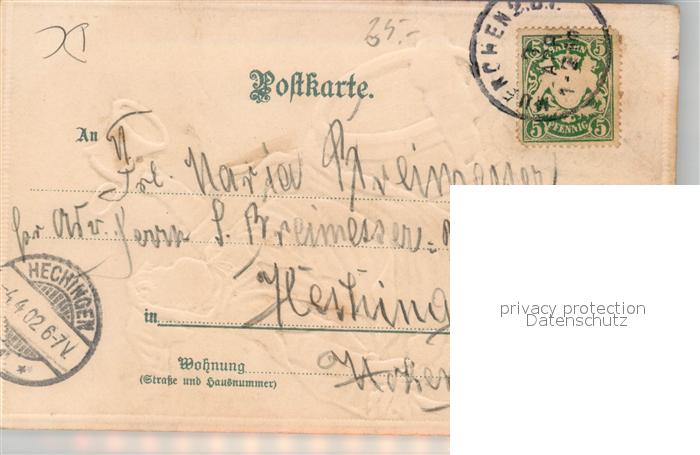 35.-
MÜNCHEN 2.B.P.
BAYERN
5 5
5 PFENNIG 5
Postkarte.
An
Frl. Maria Breimesser
pr Adr. Herrn S. Breimesser
HECHINGEN
4 4 02 6-7V.
in
Wohnung
(Straße und Hausnummer)
privacy protection
Datenschutz